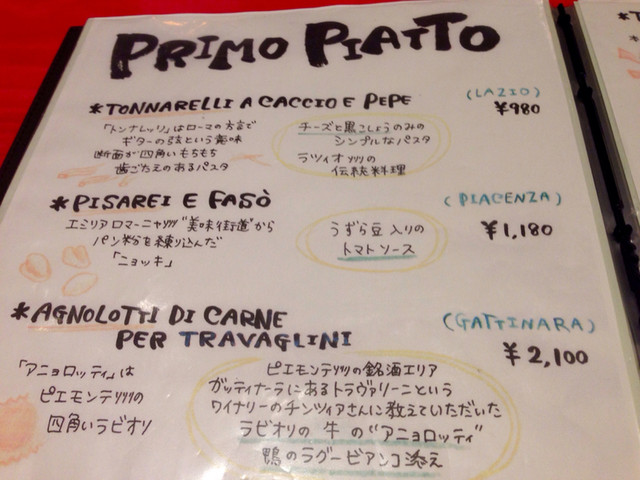 PRIMO PIATTO
*TONNARELLI A CACCIO E PEPE
(LAZIO)
¥980
「トンナレッリ」はローマの方言で
ギターの弦という意味
断面が四角いもちもち
歯ごたえのあるパスタ
チーズと黒こしょうのみの
シンプルなパスタ
ラツィオ州の
伝統料理
*PISAREI E FASÒ
(PIACENZA)
¥1,180
エミリアロマーニャ州"美味街道"から
パン粉を練り込んだ
「ニョッキ」
うずら豆入りの
トマトソース
*AGNOLOTTI DI CARNE
PER TRAVAGLINI
(GATTINARA)
¥2,100
「アニョロッティ」は
ピエモンテ州の
四角いラビオリ
ピエモンテ州の銘酒エリア
ガッティナーラにあるトラヴァリーニという
ワイナリーのチンツィアさんに教えていただいた
ラビオリの牛の"アニョロッティ"
鴨のラグービアンコ添え